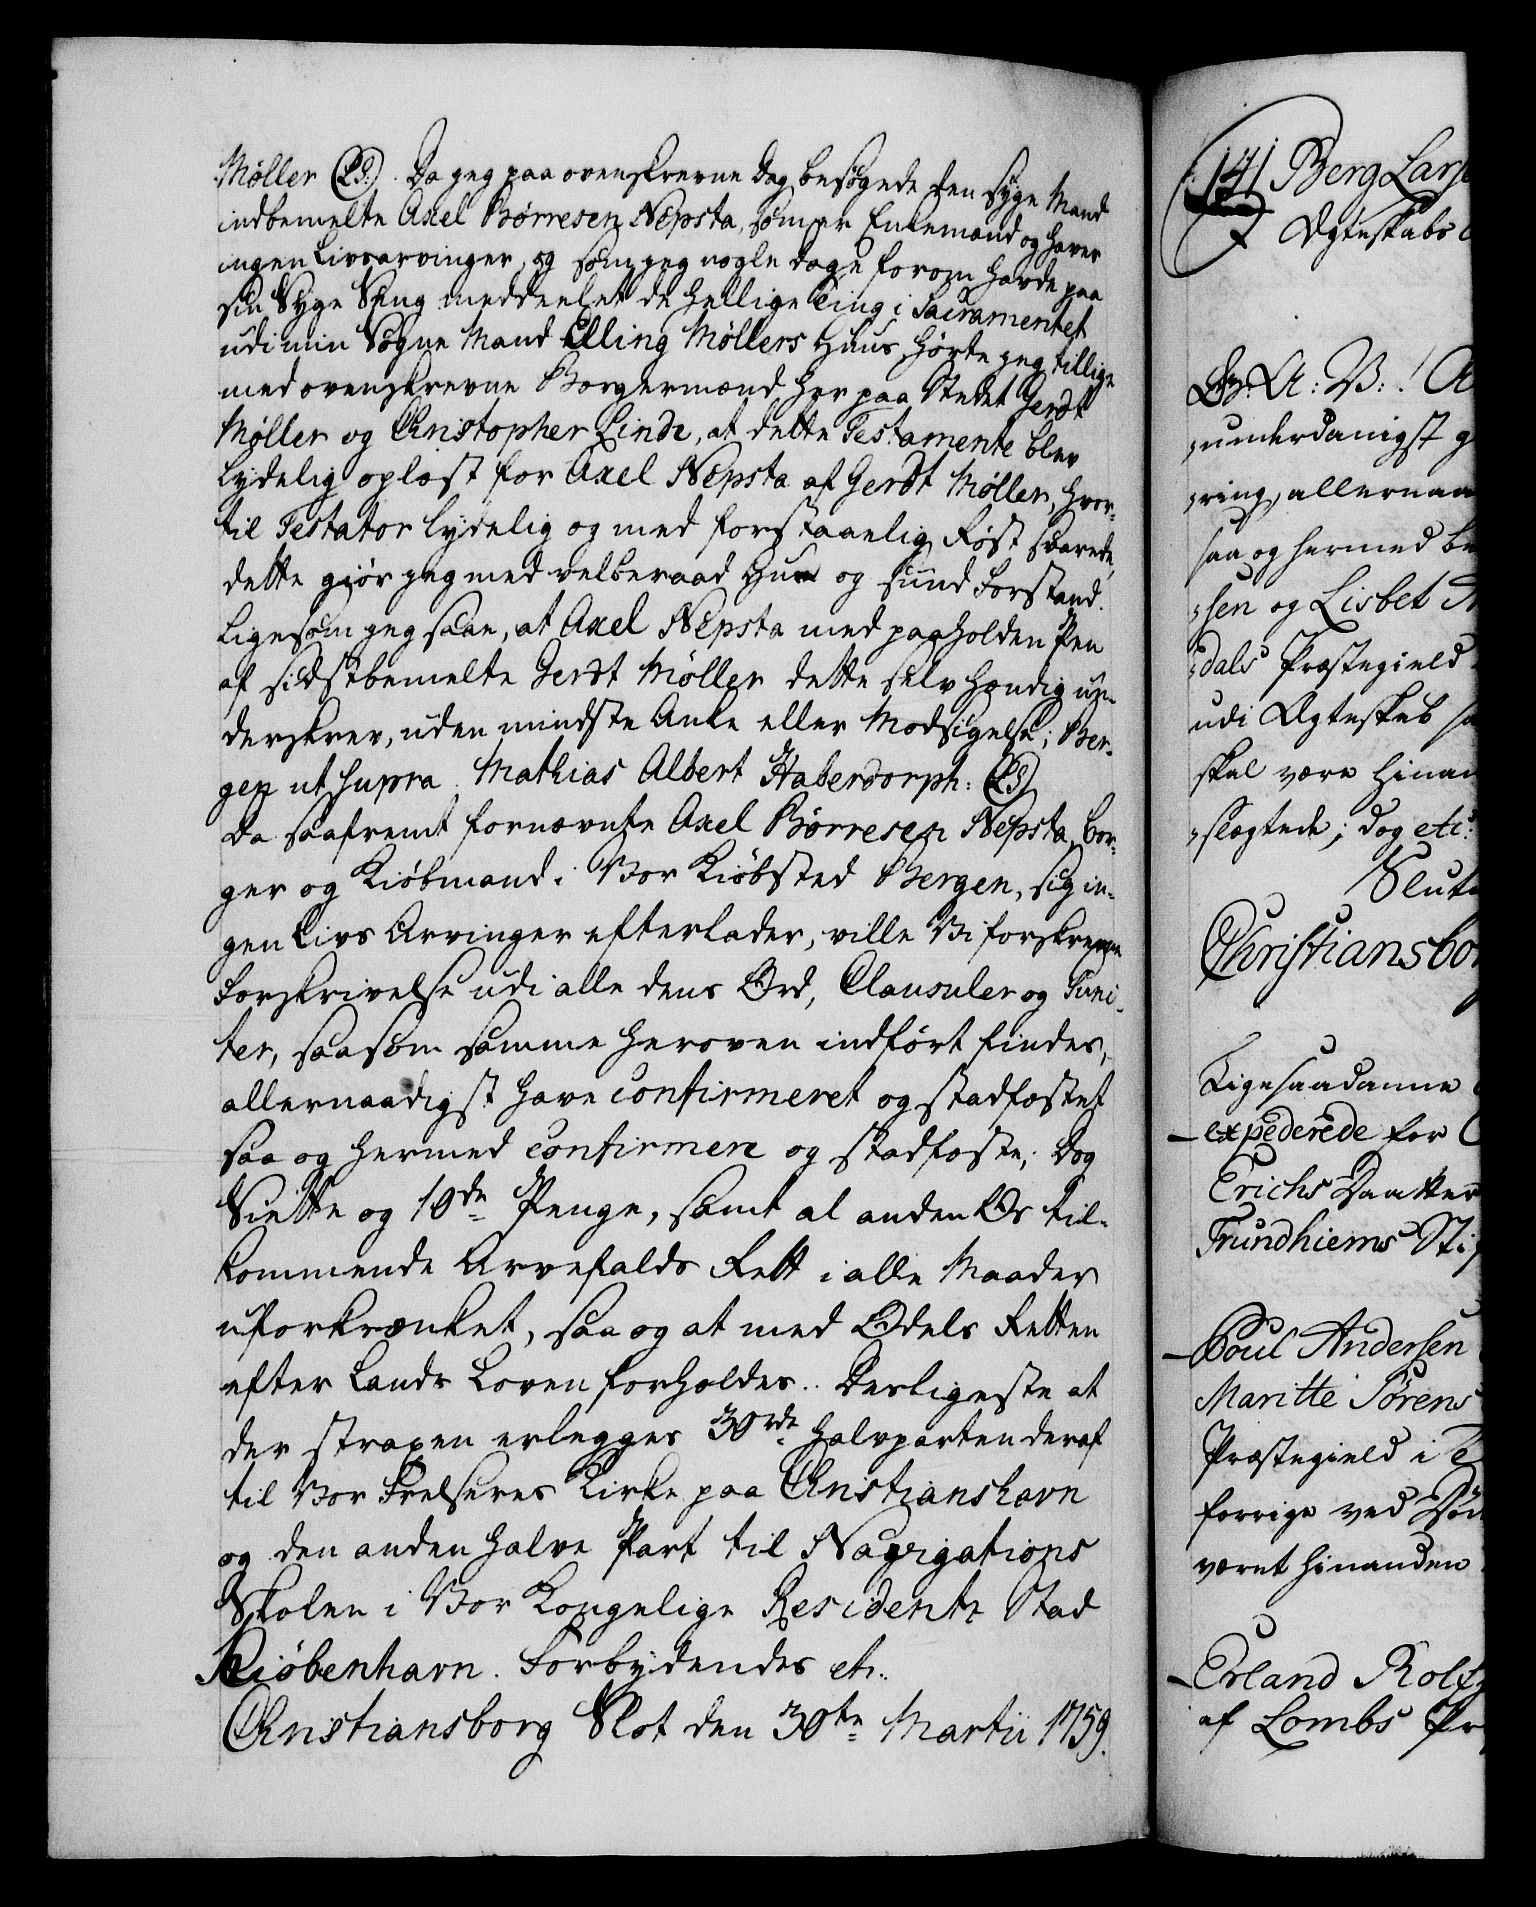 Møller (LS.). Da jeg paa ovenskrevne Dag besøgede den syge Mand
indbemelte Axel Børresen Nepsta, som er Enkemand og haver
ingen Livsarvinger, og som jeg nogle dage forom havde paa
sin Syge Seng meddeelet de hellige Ting i Sacramentet
udi min Sogne Mand Elling Møllers Huus, hørte jeg tillige
med ovenskrevne Borgermænd her paa Stedet Gerdt
Møller og Christopher Linde, at dette Testamente blev
lydelig oplæst for Axel Nepsta af Gerdt Møller, hvor-
til Testator lydelig og med forstaaelig Røst svarede,
dette giør jeg med velberaad Hue og sund Forstand.
Ligesom jeg saae, at Axel Nepsta med paaholden Pen
af sidstbemelte Gerdt Møller dette selv hændig un-
derskrev, uden mindste Anke eller Modsigelse; Ber-
gen ut supra. Mathias Albert Haberdorph: (LS)
Da saafremt fornævnte Axel Børresen Nepsta, Bor-
ger og Kiøbmand i Vor Kiøbsted Bergen, sig in-
gen Livs Arvinger efterlader, ville Vi forskrevne
Forskrivelse udi alle dens Ord, Clausuler og Punc-
ter, saasom samme heroven indført findes,
allernaadigst have confirmeret og stadfæstet
saa og hermed confirmere og stadfæste; Dog
Siette og 10de Penge, samt al anden Os til-
kommende Arvefalds Rett i alle Maader
uforkrænket, saa og at med Odels Retten
efter Lands Loven forholdes. Desligeste at
der straxen erlegges 30rde halvparten deraf
til Vor Frelseres Kirke paa Christianshavn
og den anden halve Part til Navigations
Skolen i Vor Kongelige Residentz Stad
Kiøbenhavn. Forbydendes etc.
Christiansborg Slot den 30te Martii 1759.
141 Berg Lars
Egteskabs
G: A: V: !
underdanigst
ring, allernaa
saa og hermed be
sen og Lisbet
dals Præstegield
udi Egteskab
skal være hinan
slægtede; dog etc:
Slut
Christiansbo
Ligesaadanne
expederede for
Erichs Daatter
Trundhiems Sti
Poul Andersen
Maritte Sørens
Præstegield i
forrige ved Død
været hinanden
Erland Rolf
af Lombs Pr